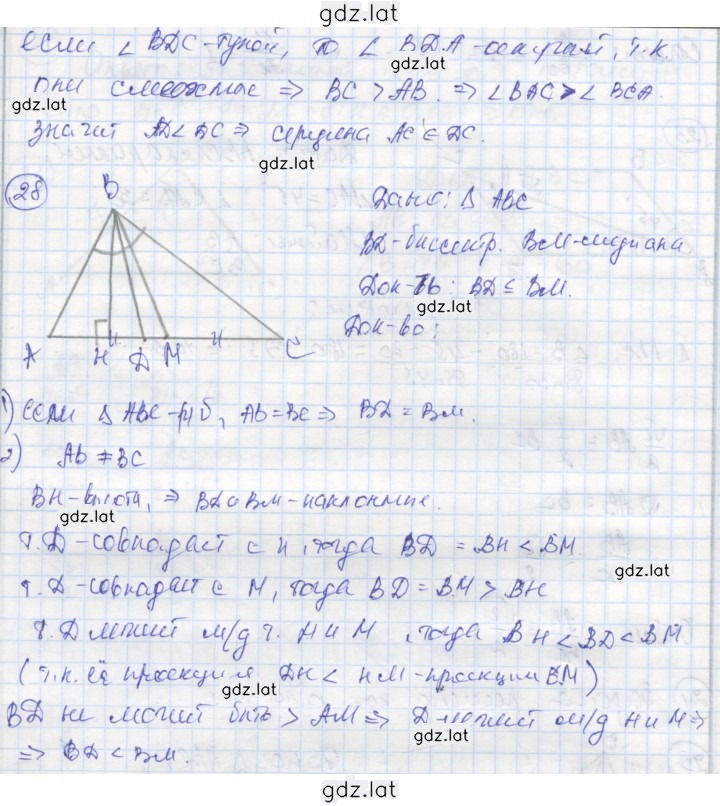 gdz.lat
если ∠ BDC-тупой, то ∠ BDA-острый, т.к.
они смежные ⇒ BC > AB ⇒ ∠BAC > ∠BCA.
gdz.lat
gdz.lat
значит AD < DC ⇒ середина AC ∈ DC.
gdz.lat
28
B
A H D M C
Дано: Δ ABC
BD-биссектр. BM-медиана
Док-ть: BD ≤ BM.
gdz.lat
Док-во:
1) Если Δ ABC-р/б, AB=BC ⇒ BD = BM.
2) AB ≠ BC
BH-высота, ⇒ BD и BM-наклонные.
gdz.lat
т. D-совпадает с H, тогда BD = BH < BM.
gdz.lat
т. D-совпадает с M, тогда BD = BM > BH
т. D лежит м/д т. H и M, тогда BH < BD < BM.
gdz.lat
(т.к. её проекция DH < HM-проекции BM)
gdz.lat
BD не может быть > AM ⇒ D-лежит м/д H и M ⇒
gdz.lat
⇒ BD < BM.
gdz.lat